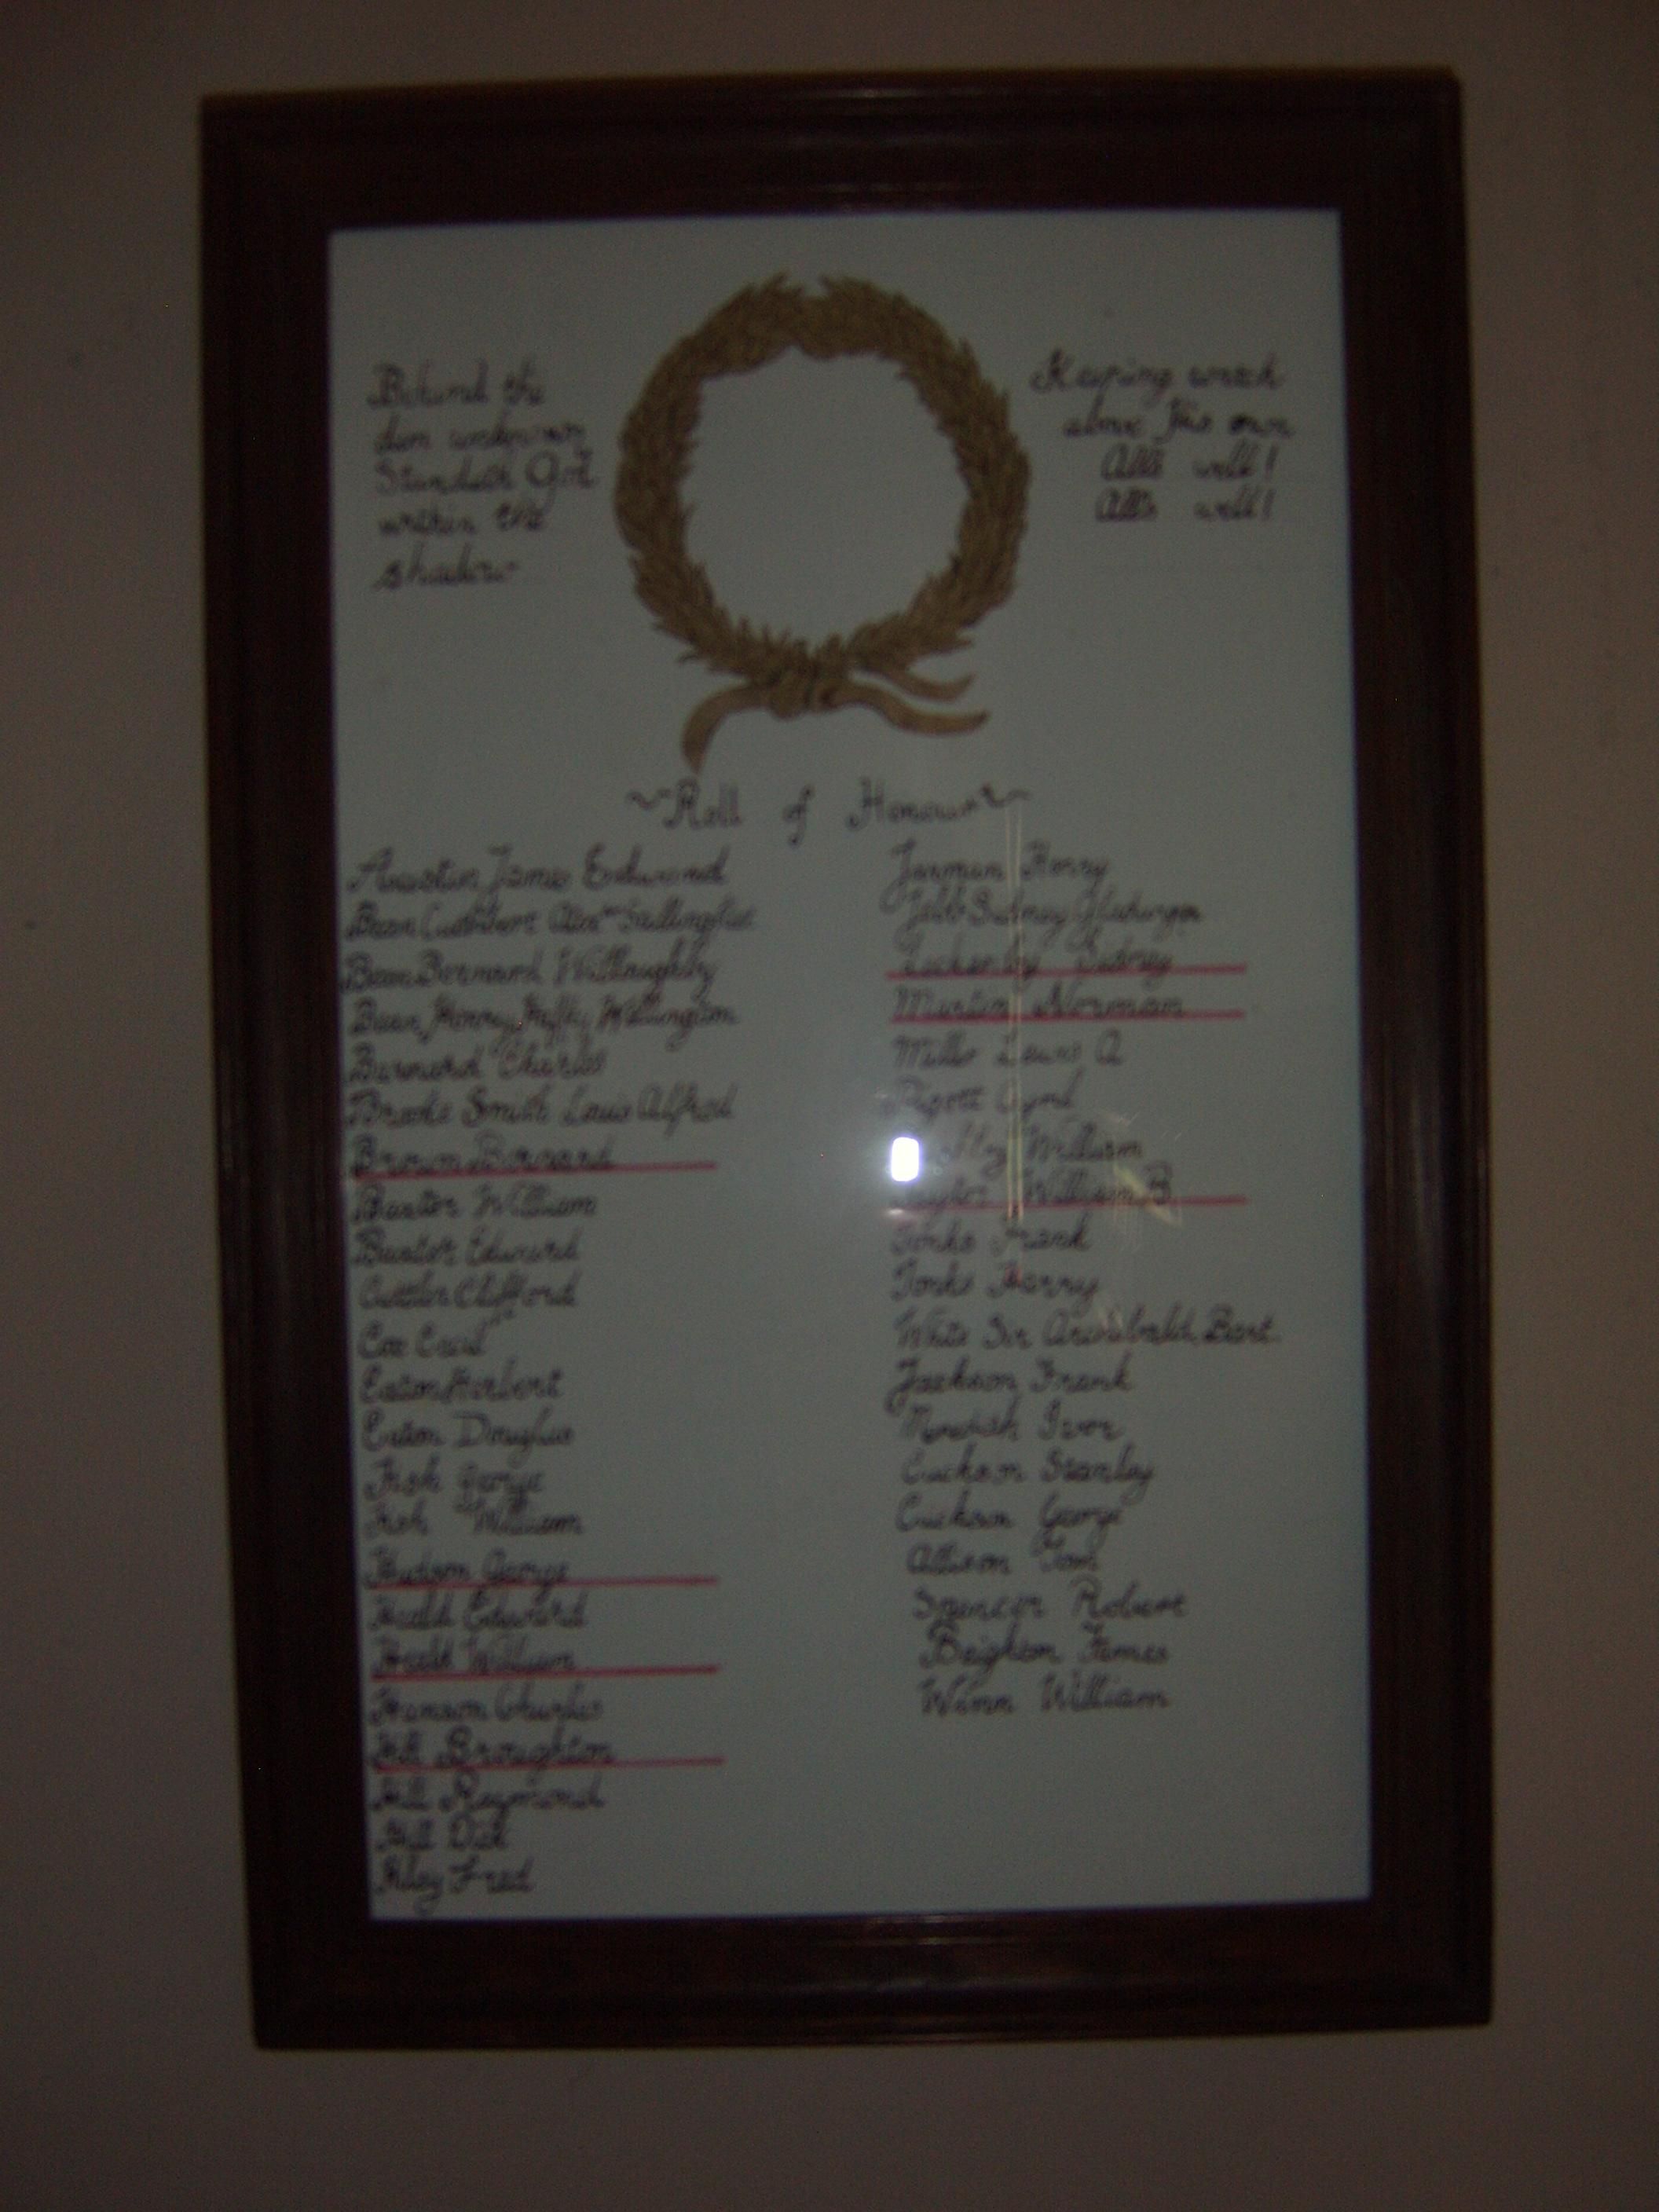 Behind the
dim unknown
Standeth God
within the
shadow
Keeping watch
above his own
All's well!
All's well!
~Roll of Honour~
James Edward
Bean Cuthbert
Bean Bernard Willoughby
Bean Henry Wellington
Barnard Charles
Brooke Smith Louis Alfred
Brown Bernard
Baxter William
Baxter Edward
Clifford
Cox Cecil
Eaton Herbert
Eaton Douglas
Fish George
Fish William
Hudson George
Edward
William
Hanson Charles
Hill Broughton
Hill Raymond
Hill Dick
Fred
Jarman Harry
Jebb Sidney
Lickerby Sidney
Martin Norman
Mills Lewis A
Pigott Cyril
William
William B
Tonks Frank
Tonks Harry
White Sir Archibald Bart.
Jackson Frank
Meredith Ivor
Cuckson Stanley
Cuckson George
Allison Tom
Spencer Robert
Beighton James
Winn William